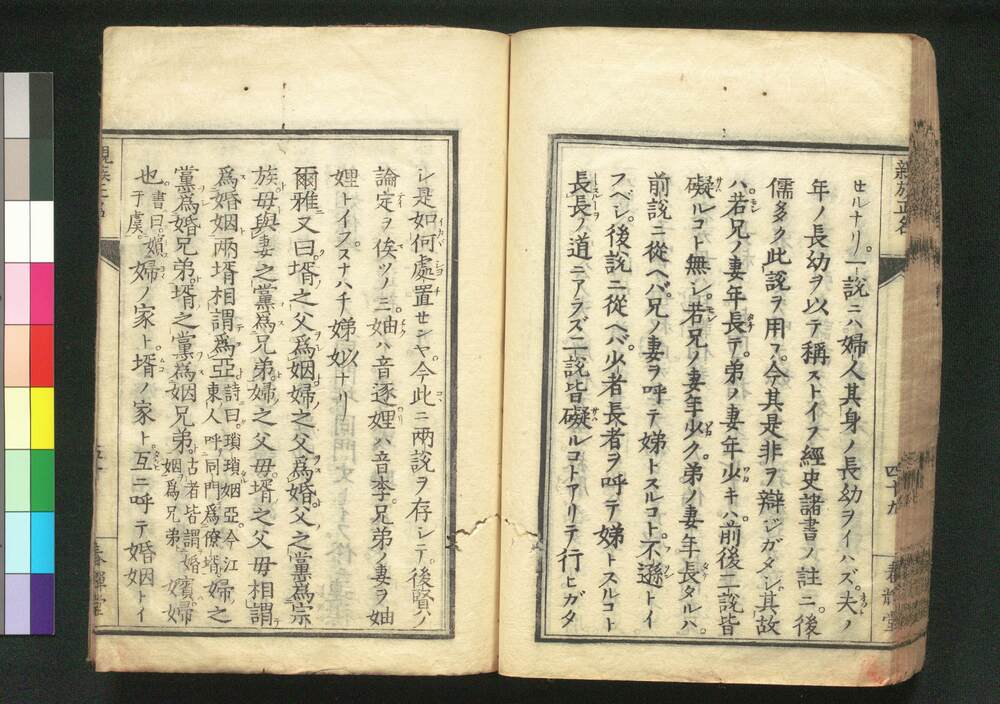 親族正名
四十九
春輝堂
セルナリ。一説ニハ婦人其身ノ長幼ヲイハズ。夫ノ
年ノ長幼ヲ以テ稱ストイフ經史諸書ノ註ニ。後
儒多ク此説ヲ用フ。今其是非ヲ辯ジガタシ。其故
ハ若兄ノ妻年長テ。弟ノ妻年少キハ。前後二説皆
礙ルコト無シ。若兄ノ妻年少ク。弟ノ妻年長タルハ。
前説ニ從ヘバ。兄ノ妻ヲ呼テ娣トスルコト。不遜トイ
スベシ。後説ニ從ヘバ。少者長者ヲ呼テ娣トスルコト
長長ノ道ニアラズ二説皆礙ルコトアリテ行ヒガタ
シ是如何處置センヤ。今此ニ兩説ヲ存シテ。後賢ノ
論定ヲ俟ツノミ妯ハ音逐娌ハ音李兄弟ノ妻ヲ妯
娌トイフスナハチ娣姒ナリ
爾雅又曰。壻之父爲姻。婦之父爲婚。父之黨爲宗
族。母與妻之黨爲兄弟。婦之父母。壻之父母。相謂
爲婚姻。兩壻相謂爲亞。詩曰。瑣瑣姻亞。今江東人呼同門爲僚壻。婦之
黨爲婚兄弟。壻之黨爲姻兄弟。古者皆謂婚姻爲兄弟。嬪婦
也。書曰。嬪于虞。婦ノ家ト。壻ノ家ト。互ニ呼テ婚姻トイ
親族正名
五十
春輝堂